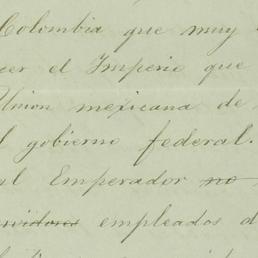 Colombia que muy
cer el Imperio que
Union mexicana de
l gobierno federal.
al Emperador no
rvidores empleados d